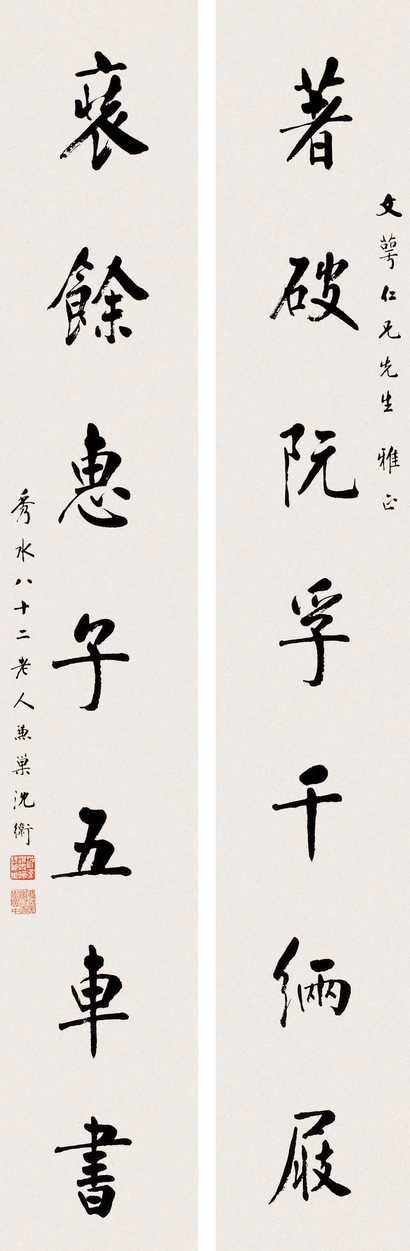 文萼仁兄先生 雅正
著破阮孚千緉屐
裝餘惠子五車書
秀水八十二老人兼巢沈衛